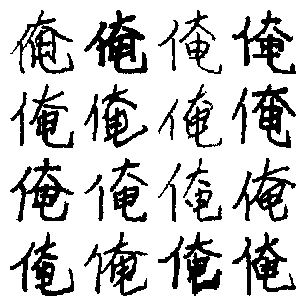 俺俺俺俺
俺俺俺俺
俺俺俺俺
俺俺俺俺